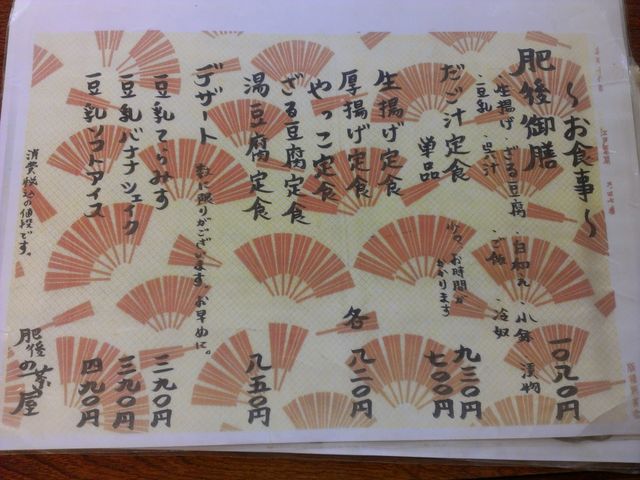 ～お食事～
肥後御膳 一〇八〇円
・生揚げ・ざる豆腐・白和え・小鉢・漬物
・豆乳・呉汁・ご飯・冷奴
だご汁定食 九三〇円
単品 七〇〇円
少々お時間がかかります
生揚げ定食
厚揚げ定食 各八二〇円
やっこ定食
ざる豆腐定食
湯豆腐定食 八五〇円
デザート 数に限りがございます。お早めに。
豆乳てらみす 三九〇円
豆乳バナナシェイク 三九〇円
豆乳ソフトアイス 四九〇円
消費税込の値段です。
肥後の茶屋